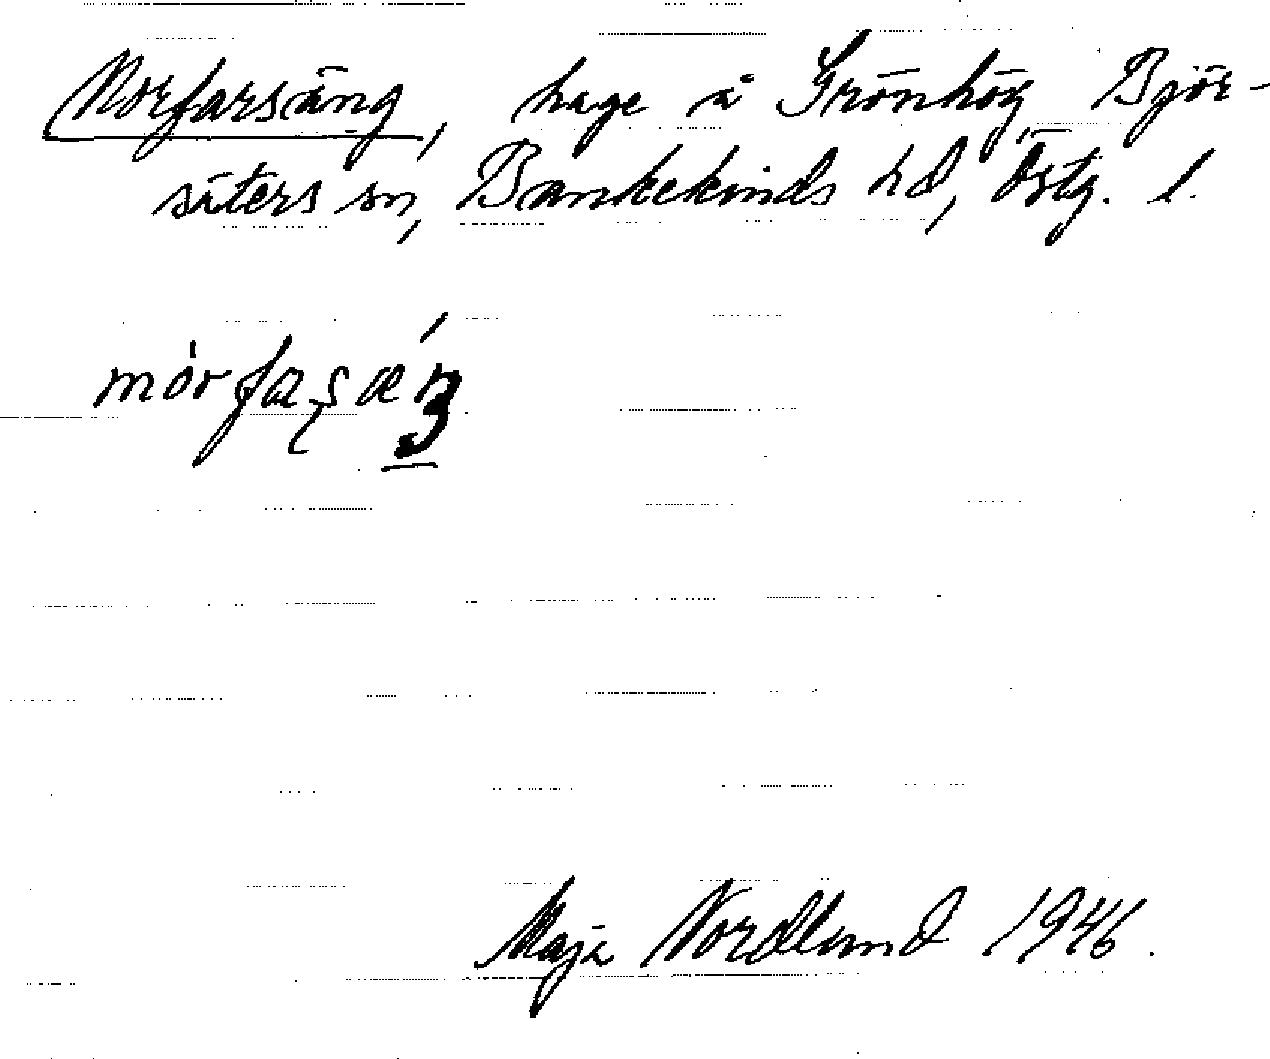 Morfarsäng, hage å Grönhög Björ-
säters sn, Bankekinds hd, Östg. l.
Maja Nordlund 1946.